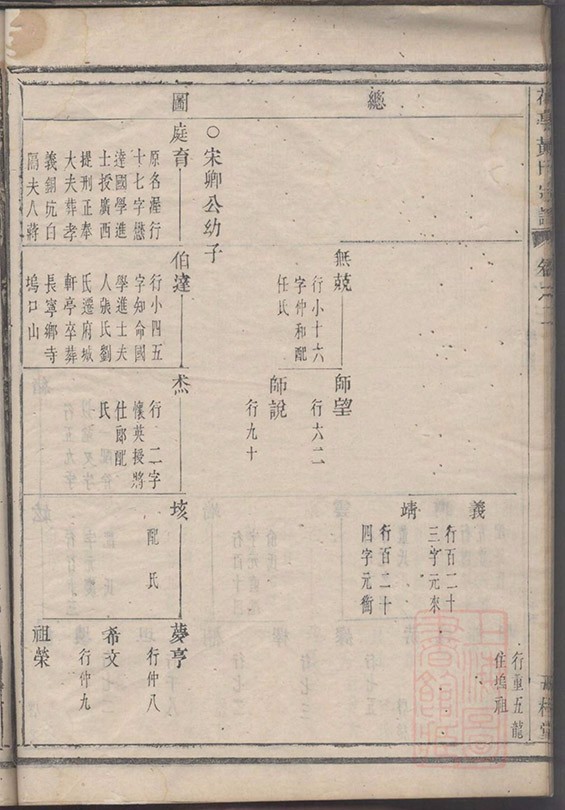 總圖
行重五龍
住塢祖
義
行百二十
三字元來
靖
行百二十
四字元衝
師望
行六二
師説
行九十
無兢
行小十六
字仲和配
任氏
○宋卿公幼子
庭育
原名渥行
十七字懋
達國學進
士授廣西
提刑正奉
大夫葬孝
義銅坑白
隝夫人蔣
伯達
行小四五
字知命國
學進士夫
人張氏劉
氏遷府城
軒亭卒葬
長寧鄉寺
塢口山
行二字
懷英授將
仕郎配
氏
垓
配氏
蔆亨
行仲八
希文
行仲九
祖榮